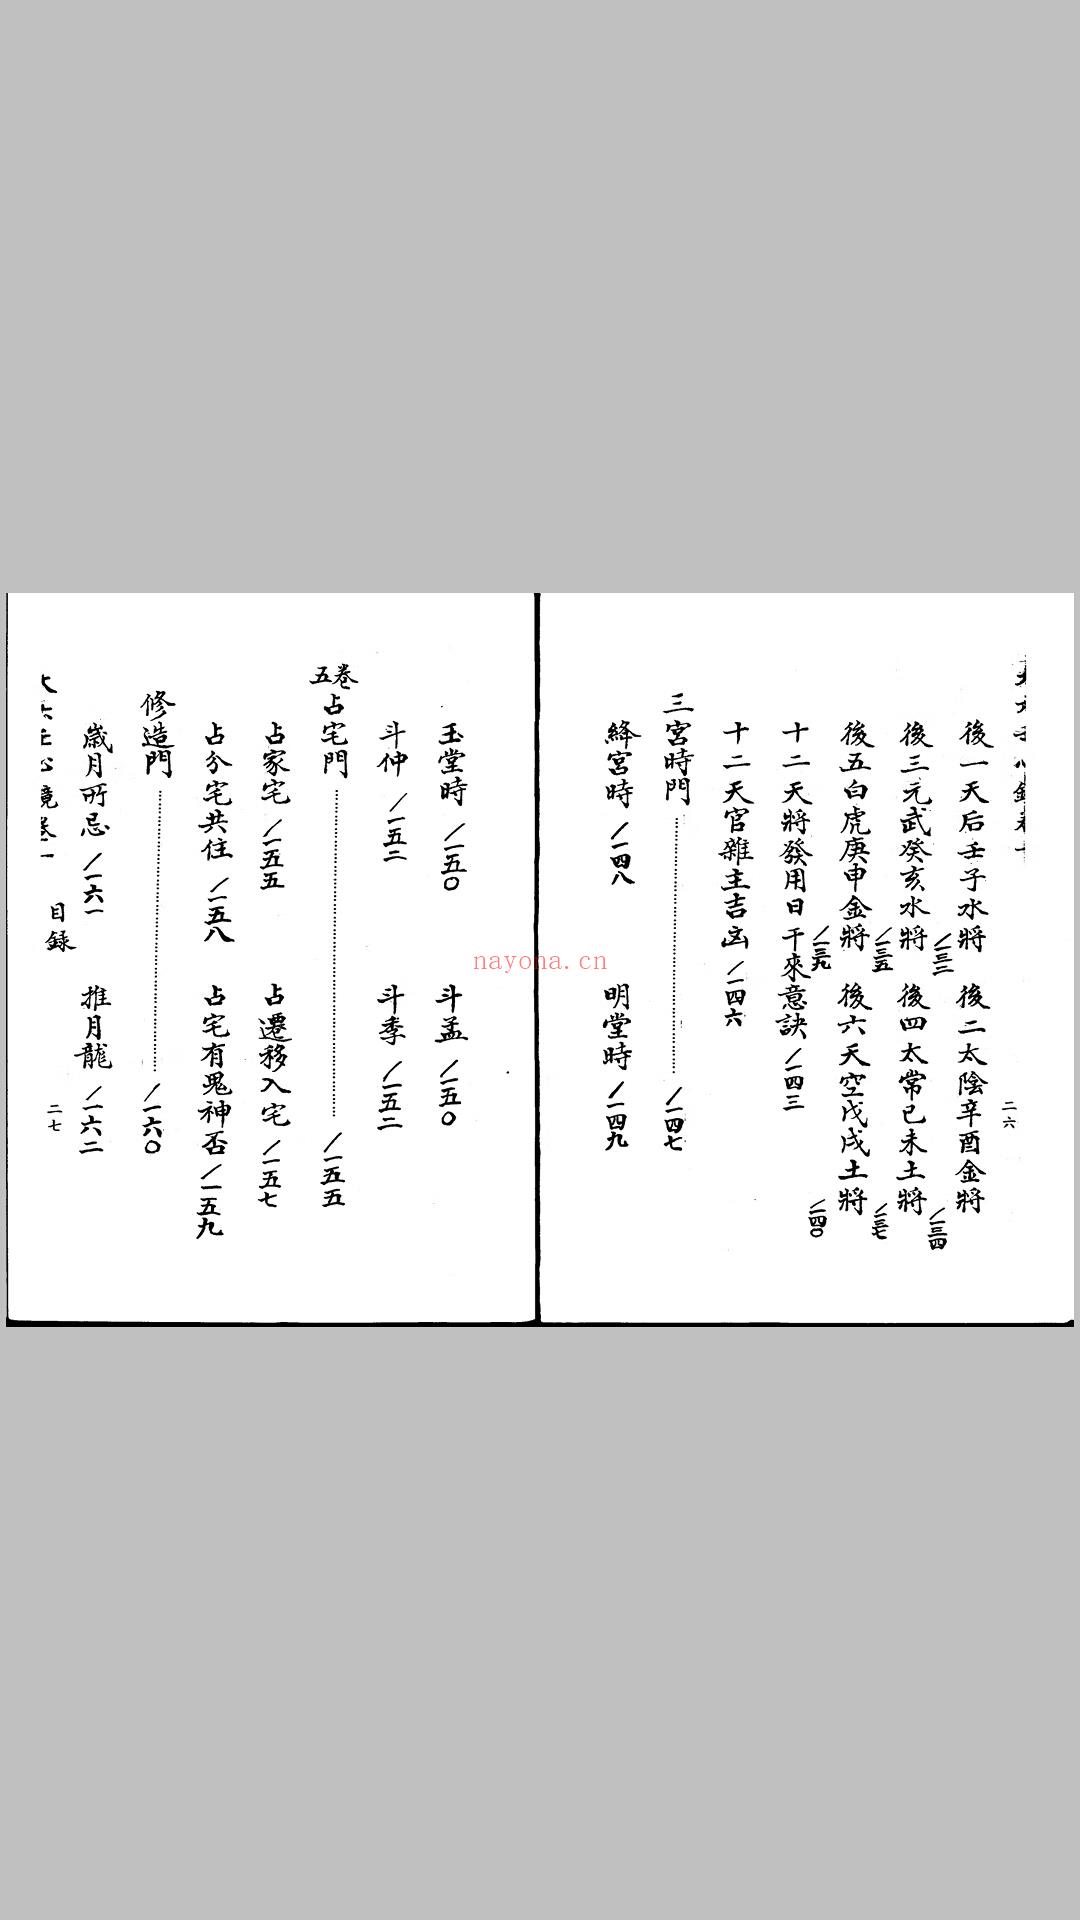 二六
後一天后壬子水將/一三二 後二太陰辛酉金將/一三四
後三元武癸亥水將/一三五 後四太常己未土將/一三七
後五白虎庚申金將/一三九 後六天空戊戌土將/一四〇
十二天將發用日干來意訣/一四三
十二天官雜主吉凶/一四六
三宮時門/一四七
絳宮時/一四八 明堂時/一四九
玉堂時/一五〇 斗孟/一五〇
斗仲/一五二 斗季/一五二
卷五
占宅門/一五五
占家宅/一五五 占遷移入宅/一五七
占分宅共住/一五八 占宅有鬼神否/一五九
修造門/一六〇
歲月所忌/一六一 推月龍/一六二
目錄 二七
nayona.cn